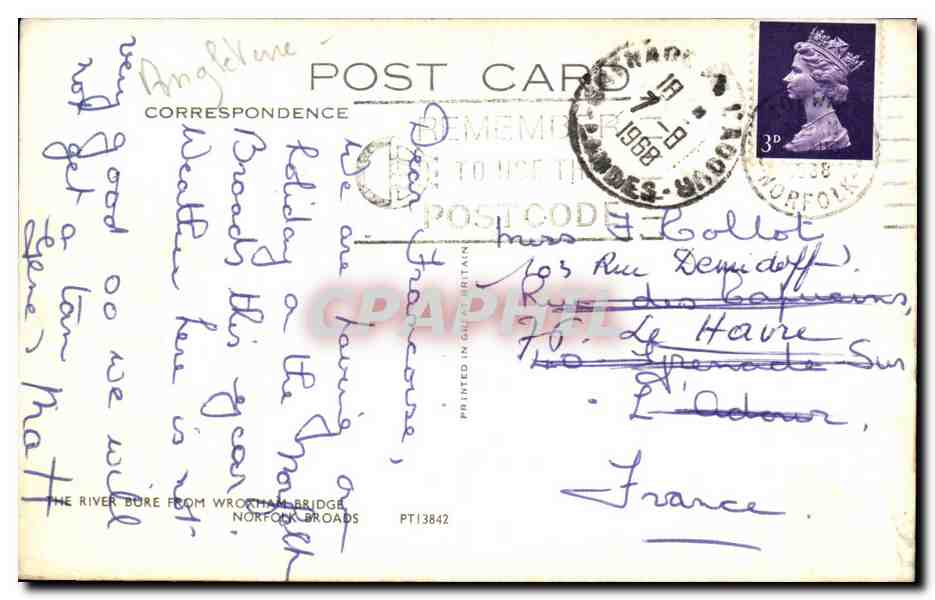 Angleterre
POST CARD
CORRESPONDENCE
REMEMBER
TO USE THE
POSTCODE
18 H
7-8
1968
LANDES
3D
1968
NORFOLK
Dear Francoise,
We are having a
holiday on the Norfolk
Broads this year.
Weather here is not
very good so we will
not get a tan
Miss F Collot
103 Rue Demidoff
Rue des Capucins,
76. Le Havre
40 Grenade Sur
L'Adour,
France.
PRINTED IN GREAT BRITAIN
CPAPHIL
THE RIVER BURE FROM WROXHAM BRIDGE
NORFOLK BROADS PT13842